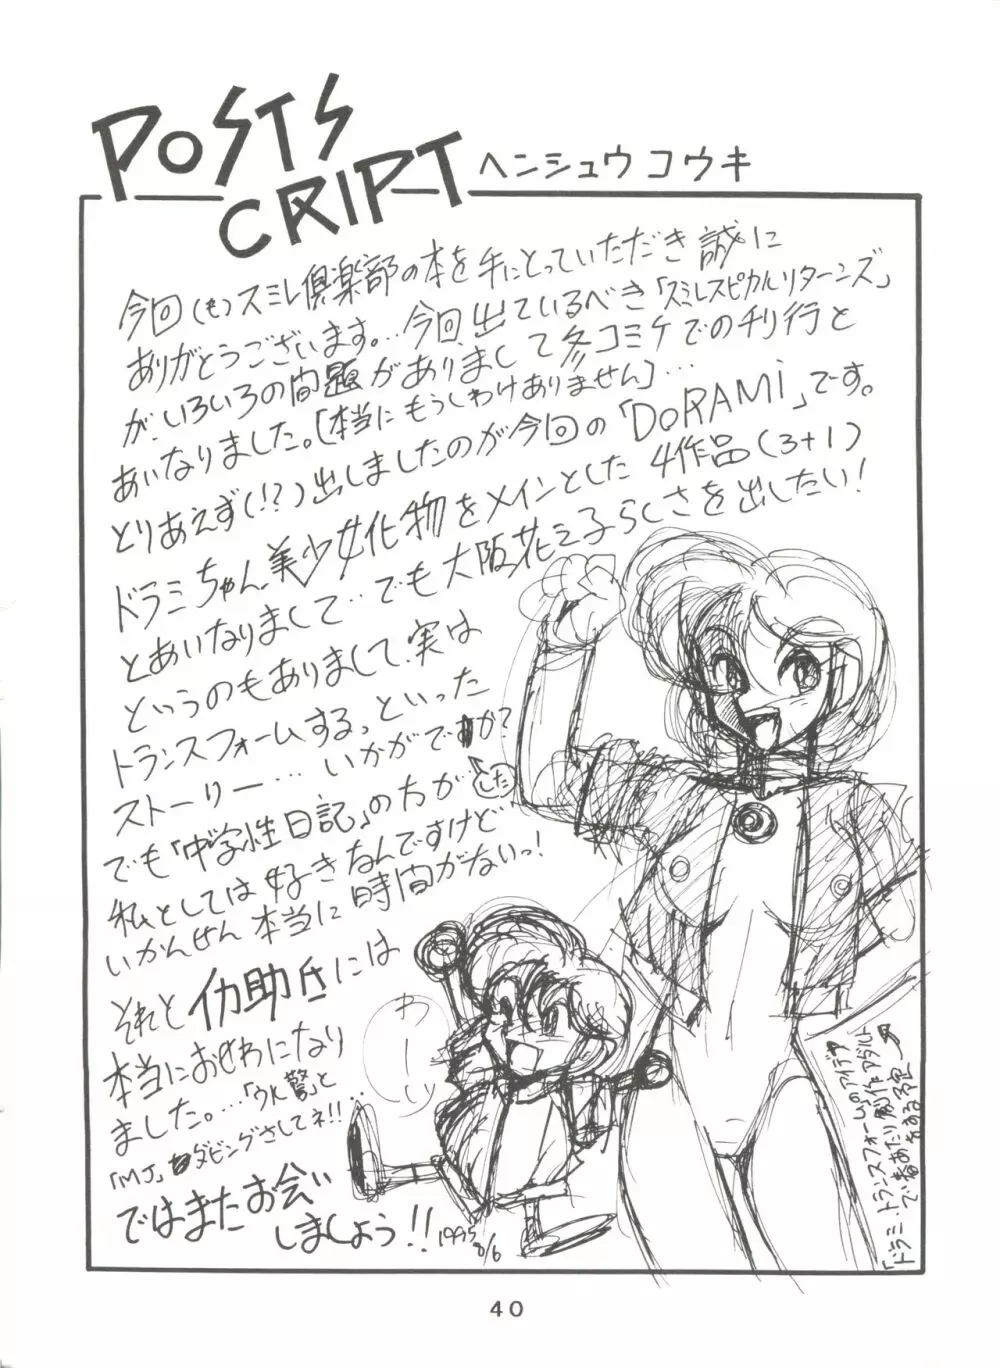 POSTS
CRIPT
ヘンシュウ コウキ
今回(も)スミレ倶楽部の本を手にとっていただき誠に
ありがとうございます。…今回、出ているべき「スミレスピカルリターンズ」
が、いろいろの問題がありまして冬コミケでの刊行と
あいなりました。[本当にもうしわけありません]…
とりあえず(!?)出しましたのが今回の「DORAMi」です。
ドラミちゃん美少女化物をメインとした4作品(3+1)
とあいなりまして…でも大阪花之子らしさを出したい!
というのもありまして、実は
トランスフォームする。といった
ストーリー…いかがですか?
でした
でも「中学性日記」の方が…
私としては好きなんですけど
いかんせん本当に時間がないっ!
それと 助氏には
本当におせわになり
ました。…「ウル驚」と
「MJ」ダビングさしてネ!!…
ではまたお会い
しましょう!! 1995
8/6
わーいっ
「ドラミ・トランスフォームのアイデア
40